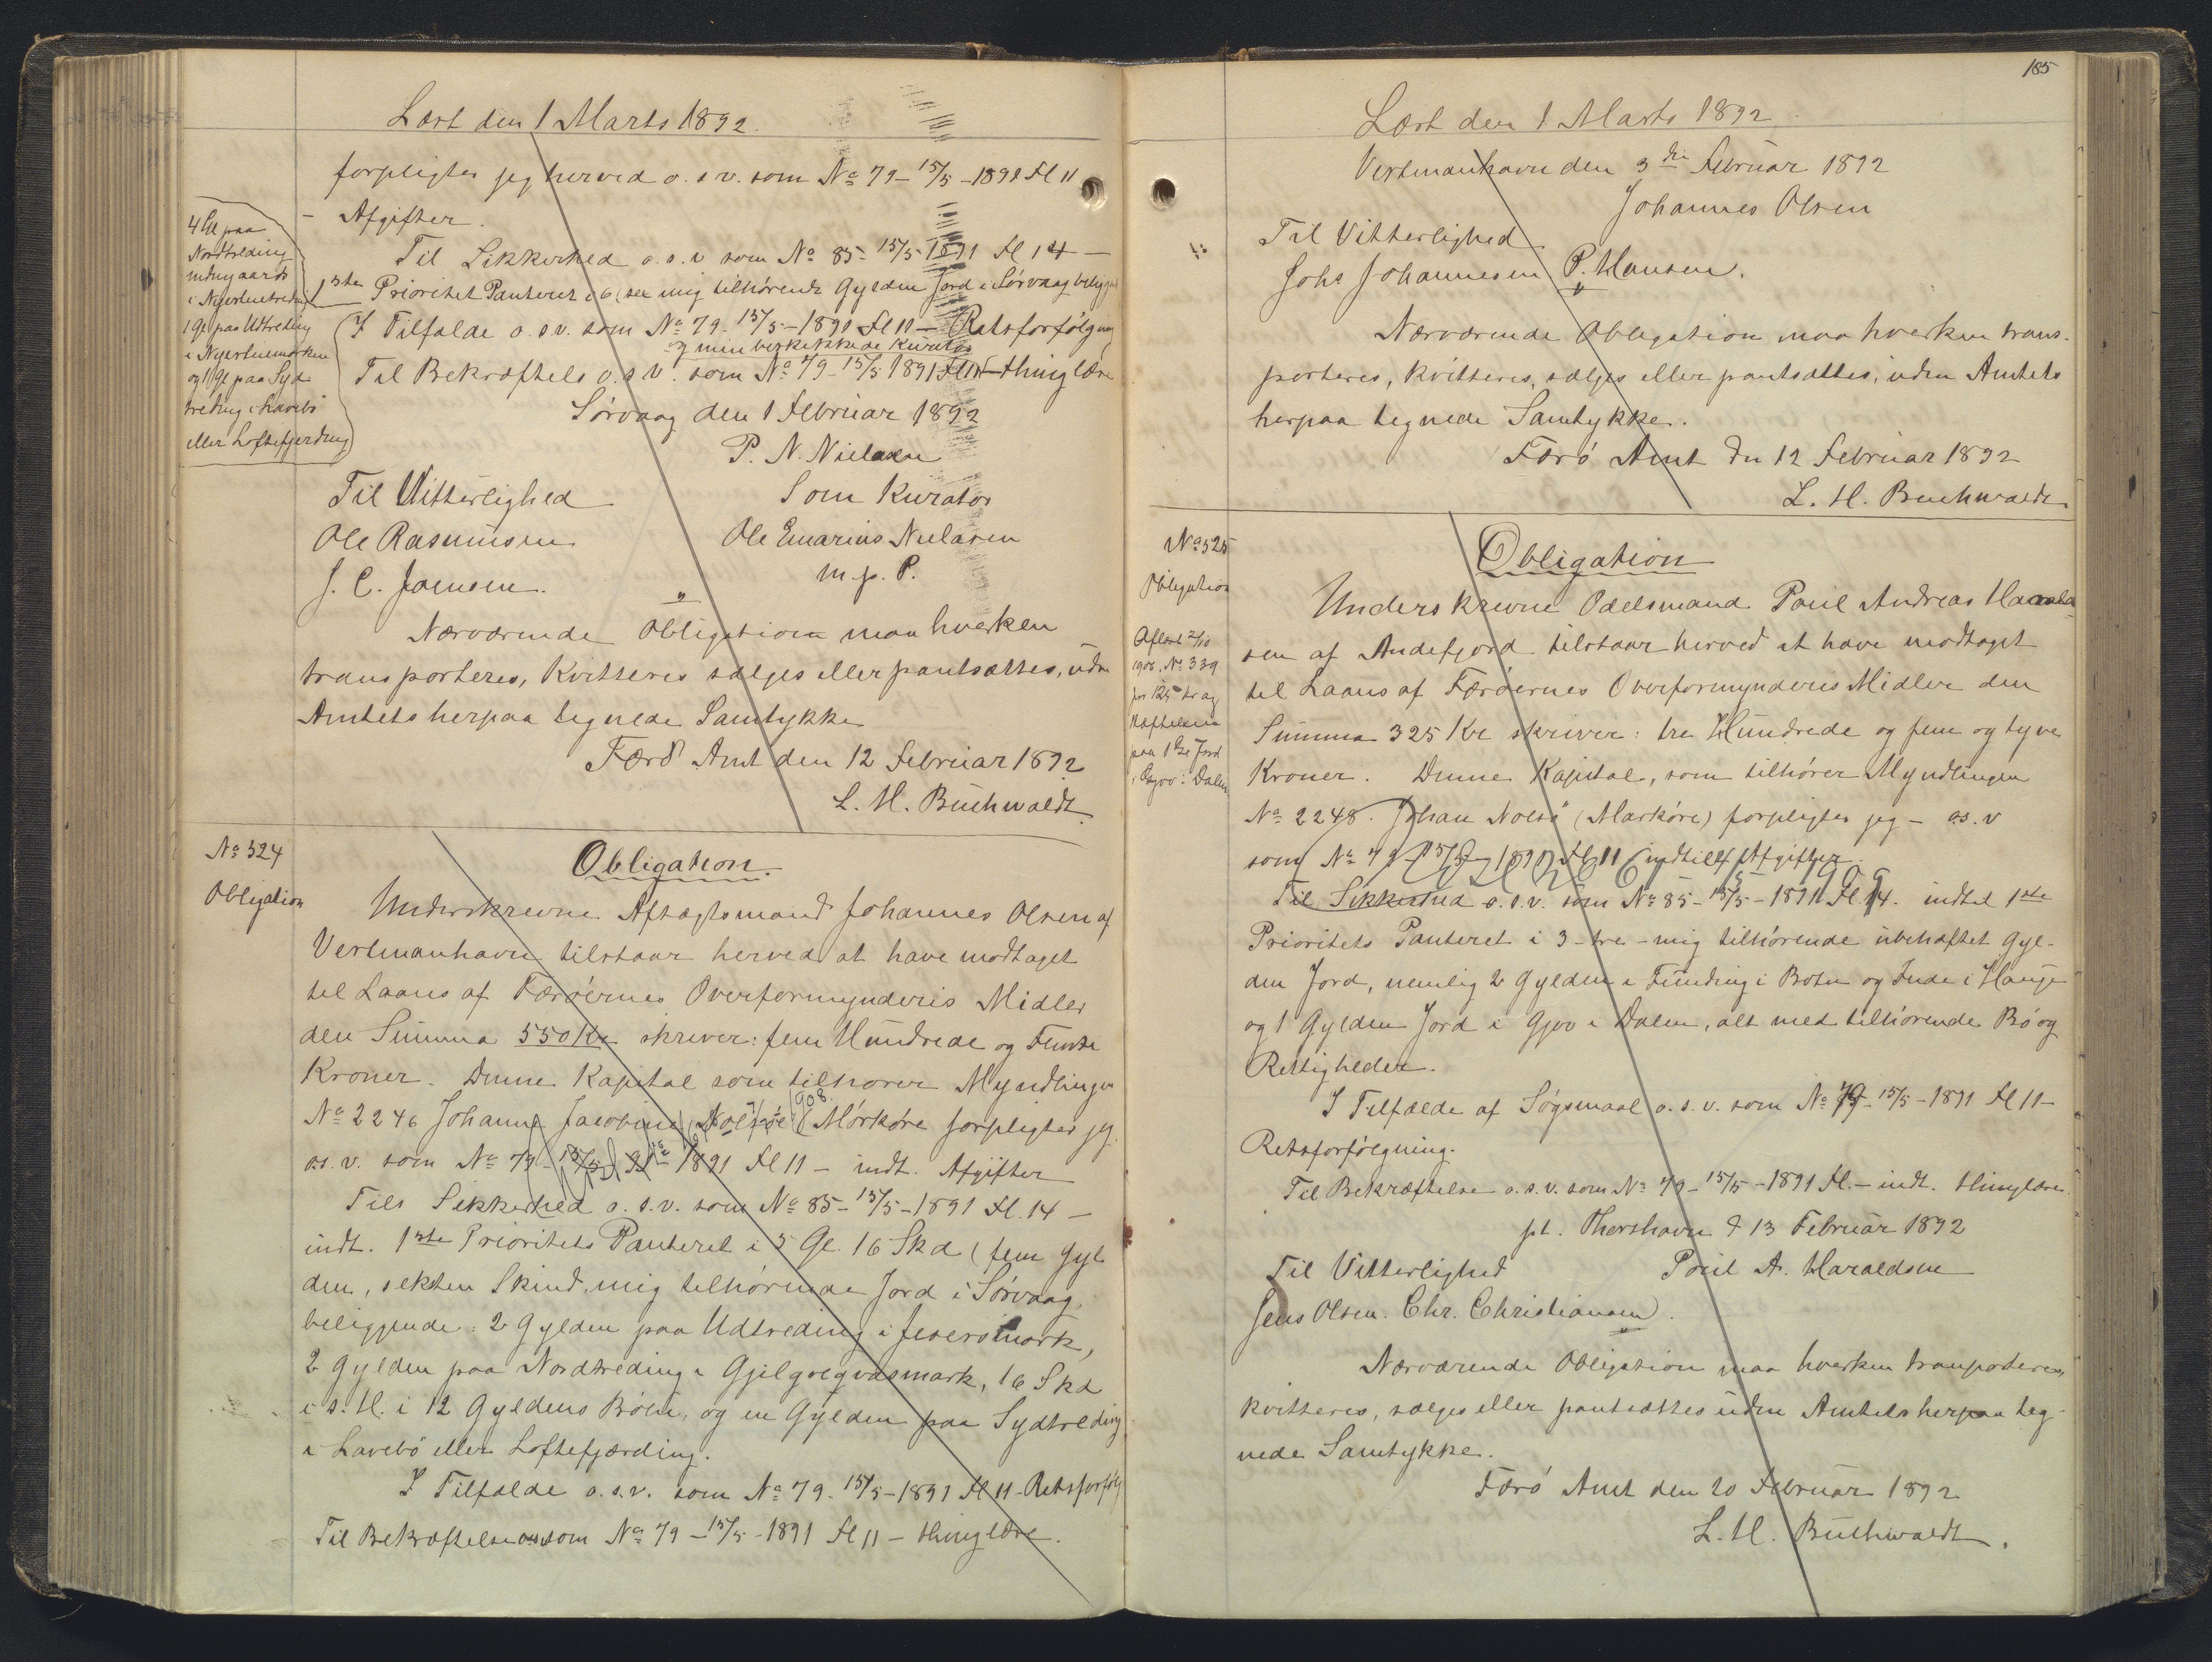 Læst den 1 Marts 1892.
forpligter jeg herved o. s v. som No 79 - 15/5 - 1891 Fl 11
- Afgifter.
Til Sikkerhed o. s. v som No 85 - 15/5 1891 Fl 14 -
1ste Prioritet Panteret i 6 (sex mig tilhørende Gylden Jord i Sørvaag
4 Gl paa
Nordtreding
indengaards
i
1 Gl paa Udtreding
i
og 1 Gl paa Syd
treding i Lavebö
eller Loftefjerding
I Tilfælde o. s v. som No 79 - 15/5 - 1891 Fl 11 - Retsforfölgning
og min Kurator
Til Bekræftelse o. s v. som No 79 - 15/5 1891 Fl 11 - thinglæse
Sörvaag den 1 Februar 1892
P. N. Nielsen
Til Vitterlighed
Som Kurator
Ole Rasmussen
Ole Emarius Nielsen
J. C. Joensen.
m. p. P.
Nærværende Obligation maa hverken
transporteres, kvitteres sælges eller pantsættes, uden
Amtets herpaa tegnede Samtykke
Færö Amt den 12 Februar 1892
L. H. Buchwaldt.
No 524
Obligation
Obligation.
Underskrevne Aftægtsmand Johannes Olsen af
Vestmanhavn tilstaar herved at have modtaget
til Laans af Færöernes Overformynderis Midler
den Summa 550 Kr skriver: fem Hundrede og Femti
Kroner. Denne Kapital som tilhører Myndlingen
No 2246 Johanne Jacobine Nolsöe (Mörköre forpligter jeg
o. s. v. som No 79 - 15/5 1891 Fl 11 - indt. Afgifter
908
Til Sikkerhed o. s. v. som No 85 - 15/5 - 1891 Fl. 14 -
indt. 1ste Prioritets Panteret i 5 Gl. 16 Skd (fem Gyl
den, seksten Skind, mig tilhørende Jord i Sörvaag,
beliggende: 2 Gylden paa Udtreding i
2 Gylden paa Nordtreding i 16 Skd
i s. H. i 12 Gyldens Böen, og en Gylden paa Sydtreding
i Lavebö eller Loftefjærding.
I Tilfælde o. s. v. som No 79 - 15/5 - 1891 Fl 11 - Retsforfölg
Til Bekræftelse osv som No 79 - 15/5 - 1891 Fl 11 - thinglæse.
185
Læst den 1 Marts 1892.
Vestmanhavn den 3die Februar 1892
Johannes Olsen
Til Vitterlighed
Johs Johannesen P. Hansen.
Nærværende Obligation maa hverken trans-
porteres, kvitteres, sælges eller pantsættes, uden Amtets
herpaa tegnede Samtykke.
Færö Amt den 12 Februar 1892
L. H. Buchwaldt
No 525
Obligation
Aflæst 2/10
No 339
paa 1 Gl Jord
i Gjov i Dalen
Obligation
Underskrevne Odelsmand Poul Andreas Harald
sen af Andefjord tilstaar herved at have modtaget
til Laans af Færöernes Overformynderis Midler den
Summa 325 Kr skriver: tre Hundrede og fem og tyve
Kroner. Denne Kapital, som tilhører Myndlingen
No 2248. Johan Nolsö (Marköre) forpligter jeg - o.s.v
som No 79 - 15/5 - 1891 Fl 11 indtil Afgifter.
Til Sikkerhed o. s. v. som No 85 - 15/5 - 1891 Fl. 14. indtil 1ste
Prioritets Panteret i 3 - tre - mig tilhørende ubehæftet Gyl-
den Jord, nemlig 2 Gylden i Funding i Botn og Inde i Hauge
og 1 Gylden Jord i Gjov i Dalen, alt med tilhørende Bö og
Rettigheder.
I Tilfælde af Sögsmaal o. s. v. som No 79 - 15/5 - 1891 Fl 11 -
Retsforfölgning.
Til Bekræftelse o. s. v. som No 79 - 15/5 - 1891 Fl. - indt. thinglæse.
pt. Thorshavn d 13 Februar 1892
Til Vitterlighed
Poul A. Haraldsen
Jens Olsen. Chr. Christiansen.
Nærværende Obligation maa hverken transporteres,
kvitteres, sælges eller pantsættes uden Amtets herpaa teg-
nede Samtykke.
Færö Amt den 20 Februar 1892
L. H. Buchwaldt.